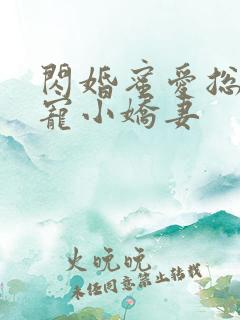 閃婚蜜愛総
寵小嬌妻
火晩晩
未任同意禁止转载